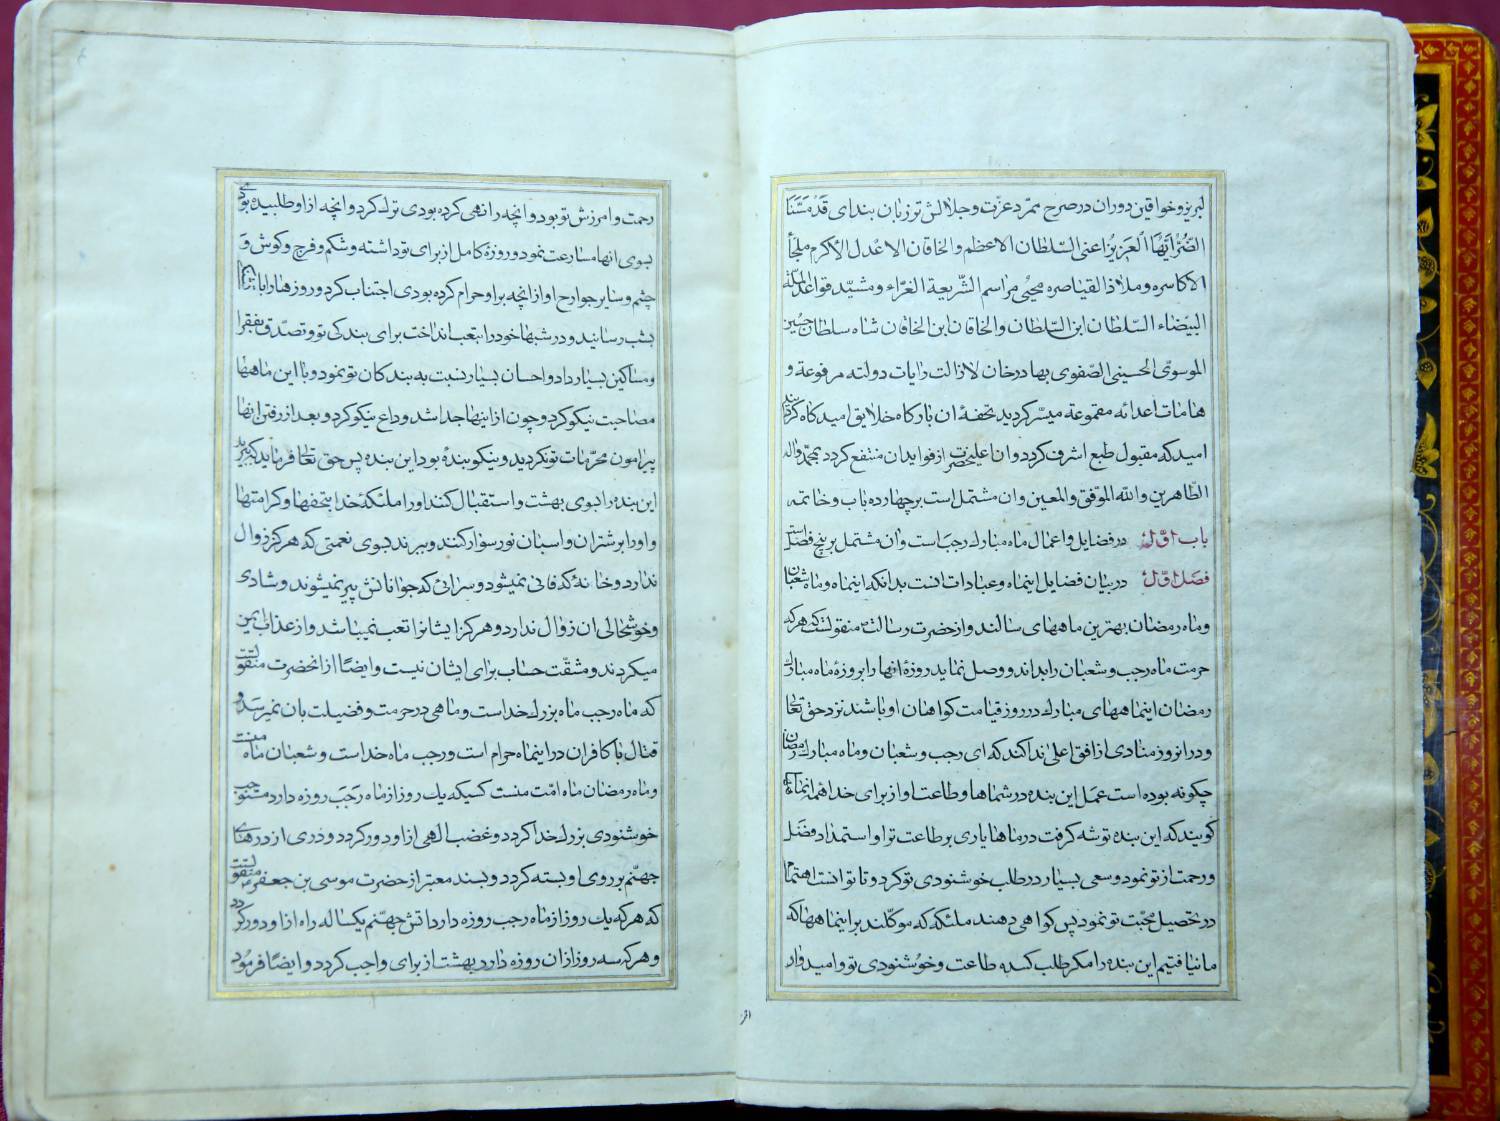 لبریز و خواقین دوران در صرح ممرد عزت و جلالش تر زبان بندای قَدْ مَسَّنَا
الضُّرُّ اَیُّهَا الْعَزِیزُ اعنی السّلطان الاعظم والخاقان الاعدل الاکرم ملجأ
الاکاسره و ملاذ القیاصره محیی مراسم الشّریعة الغرّاء و مشیّد قواعد الملّة
البیضاء السّلطان ابن السّلطان والخاقان ابن الخاقان شاه سلطان حسین
الموسوی الحسینی الصّفوی بهادرخان لازالت رایات دولته مرفوعة و
هامات اعدائه مقموعة میسّر کردید تحفهٔ ان بارکاه خلایق امیدکاه کردانید
امید که مقبول طبع اشرف کردد و ان علیحضرت از فواید ان منتفع کردد بمحمّد واله
الطّاهرین والله الموّفق والمعین و ان مشتمل است بر چهارده باب و خاتمه
باب اوّل در فضایل و اعمال ماه مبارک رجب است و ان مشتمل بر پنج فصل است
فصل اوّل در بیان فضایل اینماه و عبادات انست بدانکه اینماه و ماه شعبان
و ماه رمضان بهترین ماههای سالند و از حضرت رسالت منقولست که هر که
حرمت ماه رجب و شعبان را بداند و وصل نماید روزهٔ انها را بروزهٔ ماه مبارک
رمضان اینماههای مبارک در روز قیامت کواهان او باشند نزد حق تعالی
و در انروز منادی از افق اعلی ندا کند که ای رجب و شعبان و ماه مبارک رمضان
چکونه بوده است عمل این بنده در شماها و طاعت او از برای خدا همه انماهها
کویند که این بنده توشه کرفت در ماها یاری بر طاعت ترا و استمداد فضل
و رحمت از تو نمود و سعی بسیار در طلب خوشنودی تو کرد و تا توانست اهتمام
در تحصیل محبّت تو نمود پس کواهی دهند ملئکه که موکّلند بر اینماهها که
ما نیافتیم این بنده را مکر طلب کننده طاعت و خوشنودی تو و امیدوار
رحمت و امرزش تو بود و انچه را نهی کرده بودی ترک کرد و انچه از او طلبیده بودی
بسوی انها مسارعت نمود و روزهٔ کامل از برای تو داشته و شکم و فرج و کوش و
چشم و سایر جوارح او از انچه بر او حرام کرده بودی اجتناب کرد و روزها را با تشنکی
بشب رسانید و در شبها خود را بتعب انداخت برای بندکی تو و تصدّق بفقرا
و مساکین بسیار داد و احسان بسیار نسبت به بندکان تو نمود و با این ماهها
مصاحبت نیکو کرد و چون از اینها جدا شد وداع نیکو کرد و بعد از رفتن انها
پیرامون محرّمات تو نکردید و نیکو بندهٔ بود این بنده پس حق تعالی فرماید که ببرید
این بنده را بسوی بهشت و استقبال کنند او را ملئکهٔ خدا بتحفها و کرامتها
و او را بر شتران و اسبان نور سوار کنند و ببرند بسوی نعمتی که هرکز زوال
ندارد و خانهٔ که فانی نمیشود و سرائی که جوانانش پیر نمیشوند و شادی
و خوشحالی ان زوال ندارد و هرکز ایشانرا تعب نمیباشد و از عذاب ایمن
میکردند و مشقّت حساب برای ایشان نیست و ایضًا از انحضرت منقولست
که ماه رجب ماه بزرک خداست و ماهی در حرمت و فضیلت بان نمیرسد و
قتال با کافران در اینماه حرام است و رجب ماه خداست و شعبان ماه منست
و ماه رمضان ماه امّت منست کسیکه یک روز از ماه رجَب روزه دارد مستوجب
خوشنودی بزرک خدا کردد و غضب الهی از او دور کردد و دری از درهای
جهنّم بر روی او بسته کردد و بسند معتبر از حضرت موسی بن جعفر منقولست
که هر که یک روز از ماه رجب روزه دارد اتش جهنّم یکساله راه از او دور کردد
و هر که سه روز از ان روزه دارد بهشت از برای واجب کردد و ایضًا فرمود